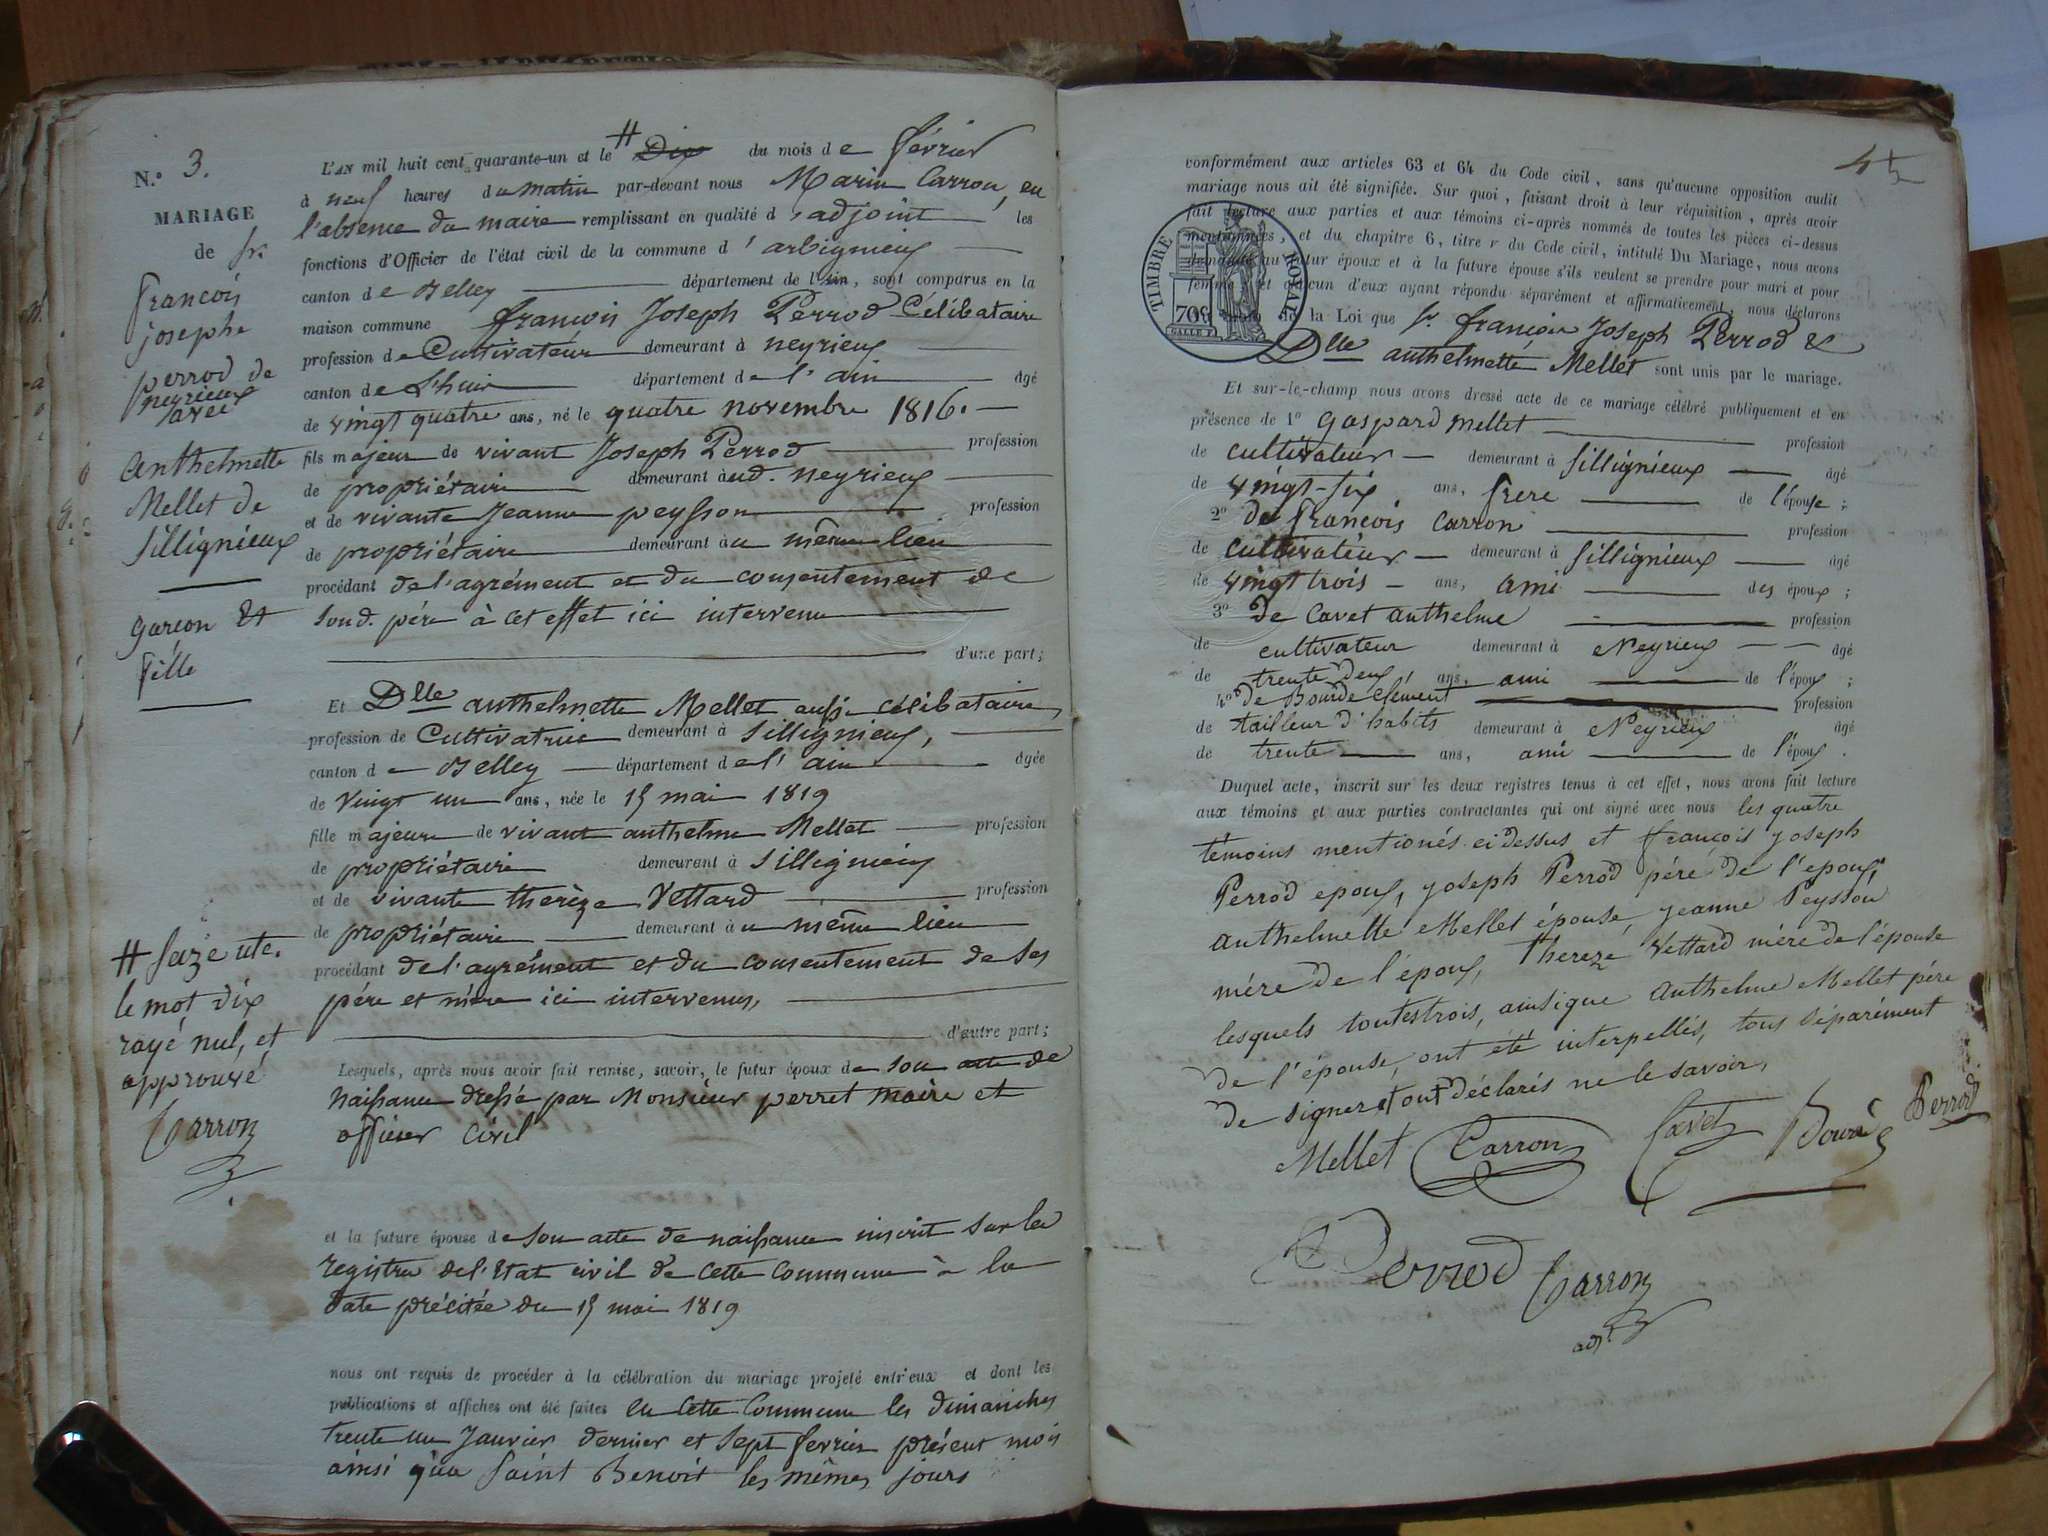 N.° 3.
MARIAGE
de fr.
francois
josephe
perrod de
neyrieux
avec
anthelmette
Mellet de
Sillignieux
garcon et
fille
# Saize ute.
le mot dix
rayé nul, et
approuvé
Carron
L'AN mil huit cent quarante-un et le # Dix du mois de février
à neuf heures du matin par-devant nous Marin Carron, en
l'absence du maire remplissant en qualité d'adjoint les
fonctions d'Officier de l'état civil de la commune d'arbignieux
canton de Belley département de l'Ain, sont comparus en la
maison commune françois Joseph Perrod Célibataire
profession de Cultivateur demeurant à neyrieux
canton de L'huis département de l'ain âgé
de vingt quatre ans, né le quatre novembre 1816.
fils majeur de vivant Joseph Perrod profession
de propriétaire demeurant aud. neyrieux
et de vivante Jeanne peysson profession
de propriétaire demeurant au même lieu
procédant de l'agrément et du consentement de
sond. père à cet effet ici intervenu
d'une part;
Et Dlle anthelmette Mellet aussi célibataire,
profession de Cultivatrice demeurant à Sillignieux,
canton de Belley département de l'ain âgée
de vingt un ans, née le 15 mai 1819
fille majeure de vivant anthelme Mellet profession
de propriétaire demeurant à Sillignieux
et de vivante therèze Vettard profession
de propriétaire demeurant au même lieu
procédant de l'agrément et du consentement de ses
père et mère ici intervenus,
d'autre part;
Lesquels, après nous avoir fait remise, savoir, le futur époux de son acte de
naissance dressé par Monsieur perret maire et
officier civil
et la future épouse de son acte de naissance inscrit sur les
registres de l'Etat civil de cette commune à la
date précitée du 15 mai 1819
nous ont requis de procéder à la célébration du mariage projeté entr'eux et dont les
publications et affiches ont été faites en cette Commune les dimanches
trente un Janvier dernier et sept fevrier présent mois
ainsi qu'a Saint Benoit les mêmes jours
4
conformément aux articles 63 et 64 du Code civil, sans qu'aucune opposition audit
mariage nous ait été signifiée. Sur quoi, faisant droit à leur réquisition, après avoir
fait lecture aux parties et aux témoins ci-après nommés de toutes les pièces ci-dessus
mentionnées, et du chapitre 6, titre V du Code civil, intitulé Du Mariage, nous avons
demandé au futur époux et à la future épouse s'ils veulent se prendre pour mari et pour
femme, et chacun d'eux ayant répondu séparément et affirmativement, nous déclarons
au nom de la Loi que Sr. françois Joseph Perrod &
Dlle anthelmette Mellet sont unis par le mariage.
TIMBRE ROYAL
70c
Et sur-le-champ nous avons dressé acte de ce mariage célébré publiquement et en
présence de 1° Gaspard Mellet profession
de cultivateur demeurant à Sillignieux âgé
de vingt-six ans, frere de l'épouse;
2° de françois Carron profession
de cultivateur demeurant à Sillignieux âgé
de vingt trois ans, ami des époux;
3° de Cavet anthelme profession
de cultivateur demeurant à Neyrieux âgé
de trente deux ans, ami de l'époux;
4° de Bourde Clément profession
de tailleur d'habits demeurant à Neyrieux âgé
de trente ans, ami de l'époux.
Duquel acte, inscrit sur les deux registres tenus à cet effet, nous avons fait lecture
aux témoins et aux parties contractantes qui ont signé avec nous les quatre
témoins mentionés ci dessus et françois yoseph
Perrod epoux, yoseph Perrod père de l'epoux,
anthelmette Mellet épouse, yeanne Peysson
mère de l'époux, Thereze Vettard mère de l'épouse
lesquels toutestrois, ainsique anthelme Mellet père
de l'épouse, ont été interpellés, tous séparément
de signer et ont déclarés ne le savoir,
Mellet Carron Cavet Bourde Perrod
Perrod Carron
adj.t